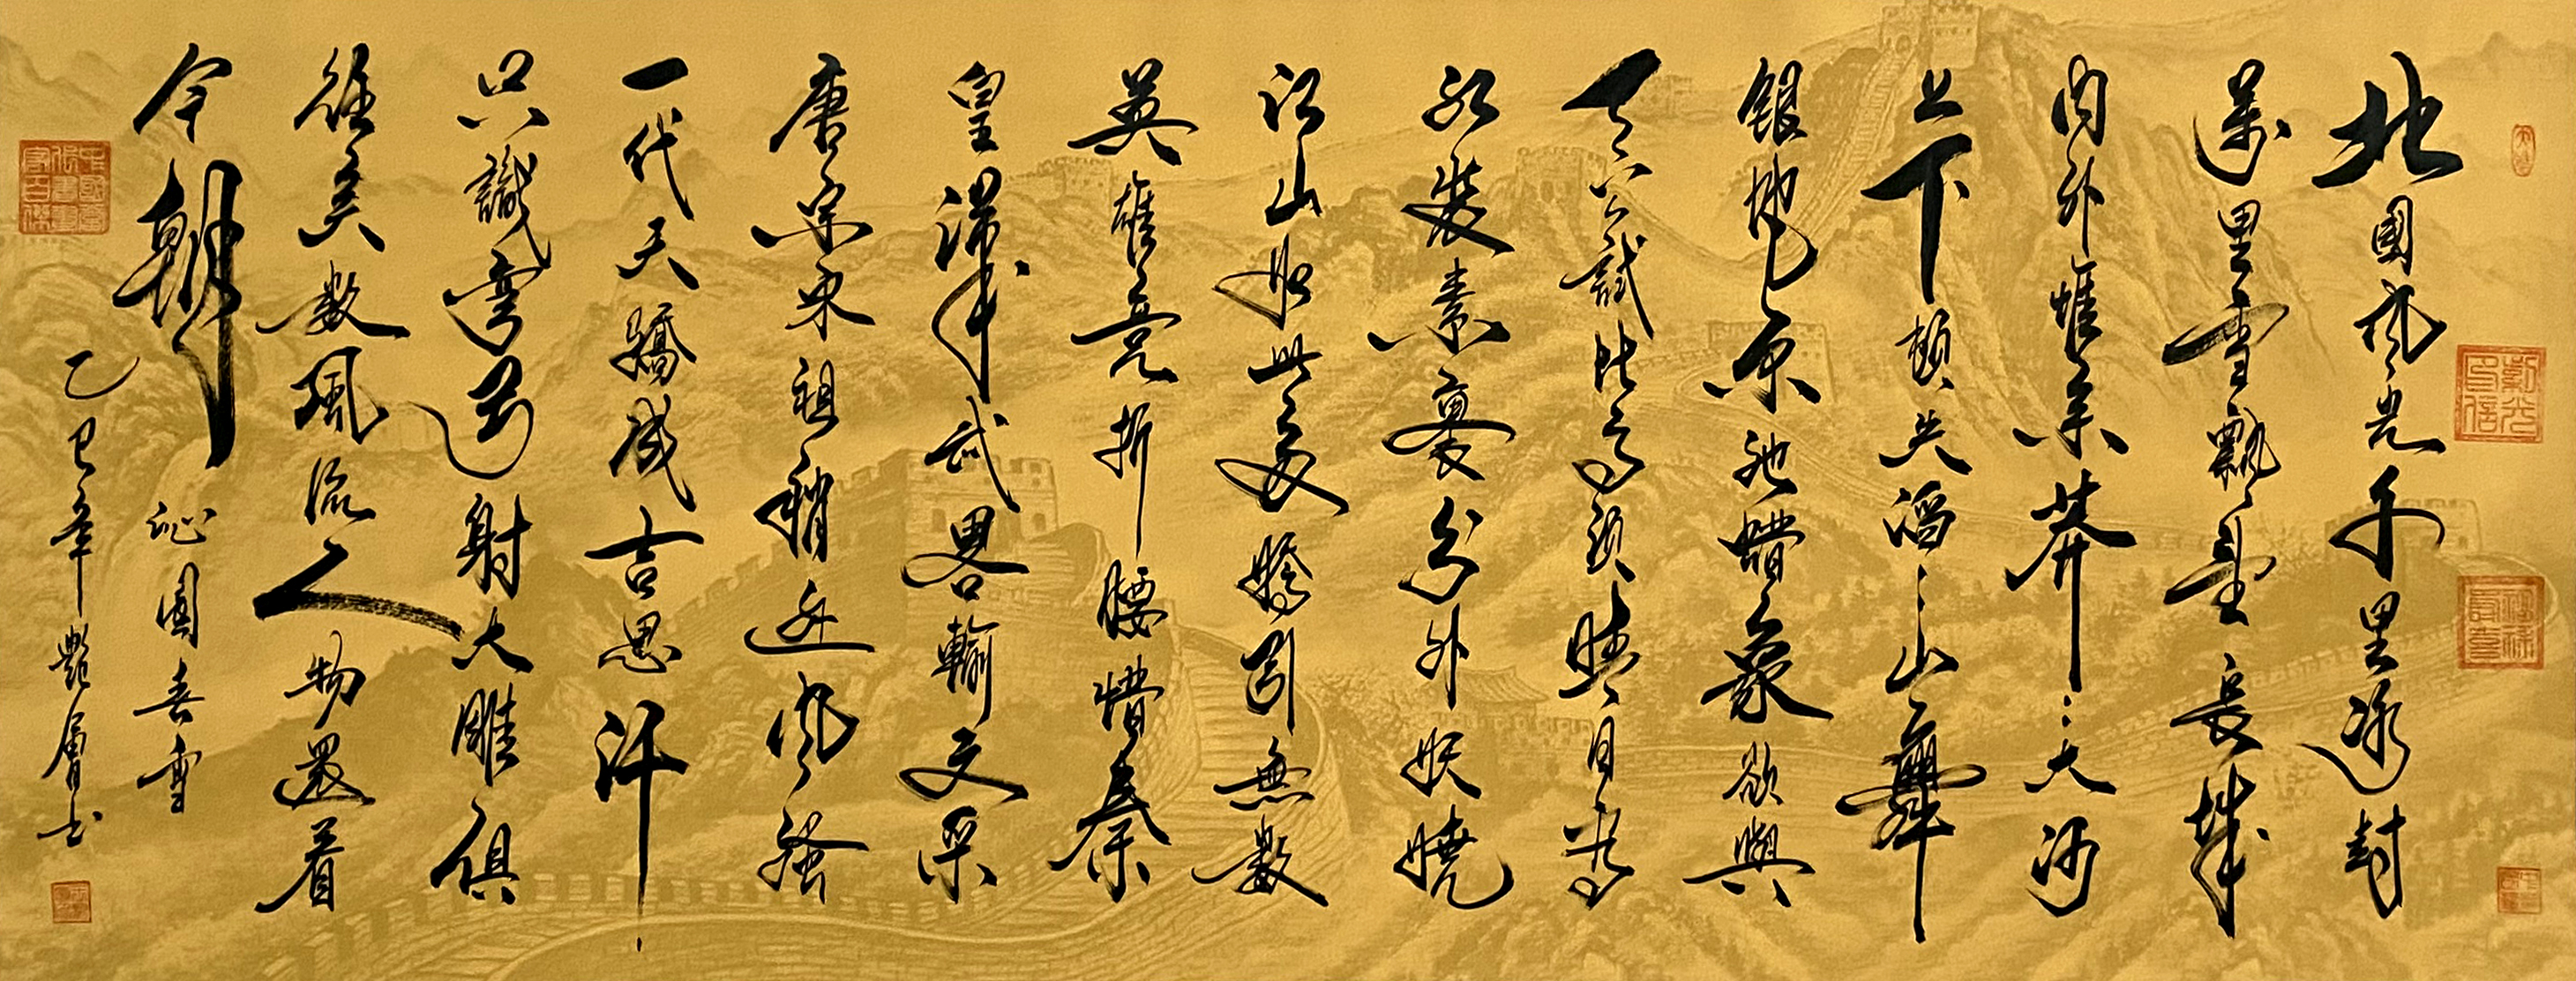 北國風光千里冰封
萬里雪飄望長城
内外惟余莽莽大河
上下頓失滔滔山舞
銀蛇原馳蠟象欲與
天公試比高須晴日看
紅裝素裹分外妖嬈
江山如此多嬌引無數
英雄競折腰惜秦
皇漢武略輸文采
唐宗宋祖稍遜風騷
一代天驕成吉思汗
只識彎弓射大雕俱
往矣數風流人物還看
今朝 沁園春雪
乙巳年艷層书